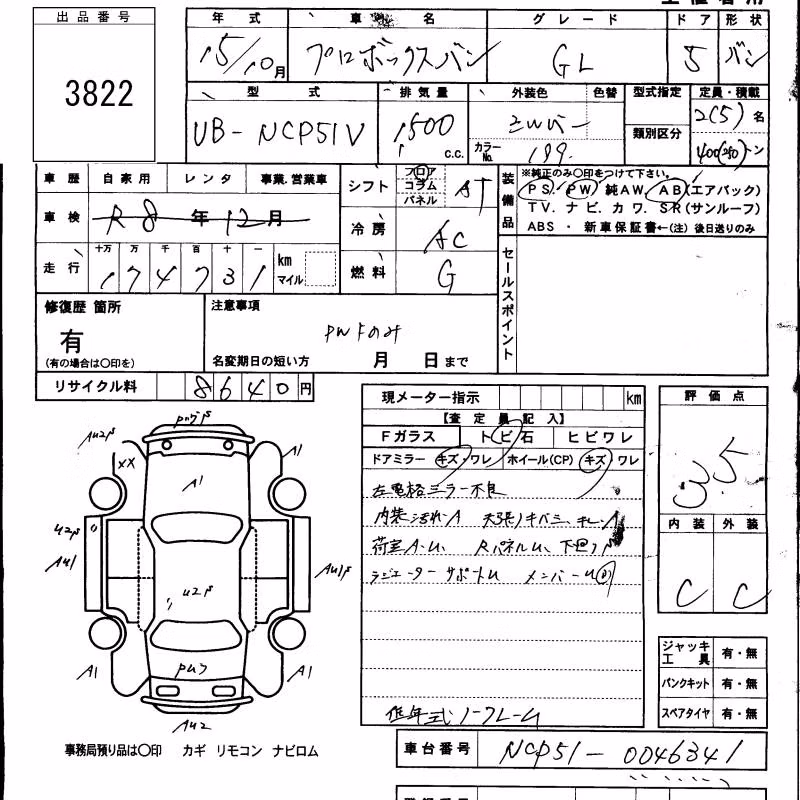 出品番号
3822
年式 車名 グレード ドア 形状
15/10月 プロボックスバン GL 5 バン
型式 排気量 外装色 色替 型式指定 定員・積載
類別区分
UB-NCP51V 1500 c.c. シルバー 2(5) 名
カラーNo. 199. 400(250)トン
車歴 自家用 レンタ 事業.営業車
車検 R8年12月
走行 十万 万 千 百 十 一
174731 km マイル
シフト フロア コラム パネル AT
冷房 AC
燃料 G
装備品
※純正のみ○印をつけて下さい。
PS. PW 純AW. AB(エアバック)
TV. ナビ. カワ. SR(サンルーフ)
ABS ・ 新車保証書←(注) 後日送りのみ
セールスポイント
修復歴 箇所
有
(有の場合は○印を)
注意事項
PWFのみ
名変期日の短い方 月 日まで
リサイクル料 8640円
現メーター指示 km
【査定員記入】
Fガラス トビ石 ヒビワレ
ドアミラー キズ・ワレ ホイール(CP) キズ・ワレ
左電格ミラー不良
内装汚れ・A 天張りキバミ、キレ
荷室A・U、 RパネルU、下廻り
ラジエーターサポートU メンバーU
低年式ノークレーム
評価点
3.5
内装 外装
C C
ジャッキ工具 有・無
パンクキット 有・無
スペアタイヤ 有・無
AU2P
XX
A1
A1
U2P
AU1
U2P
AU1P
A1
A1
AU2
事務局預り品は○印 カギ リモコン ナビロム
車台番号 NCP51-0046341